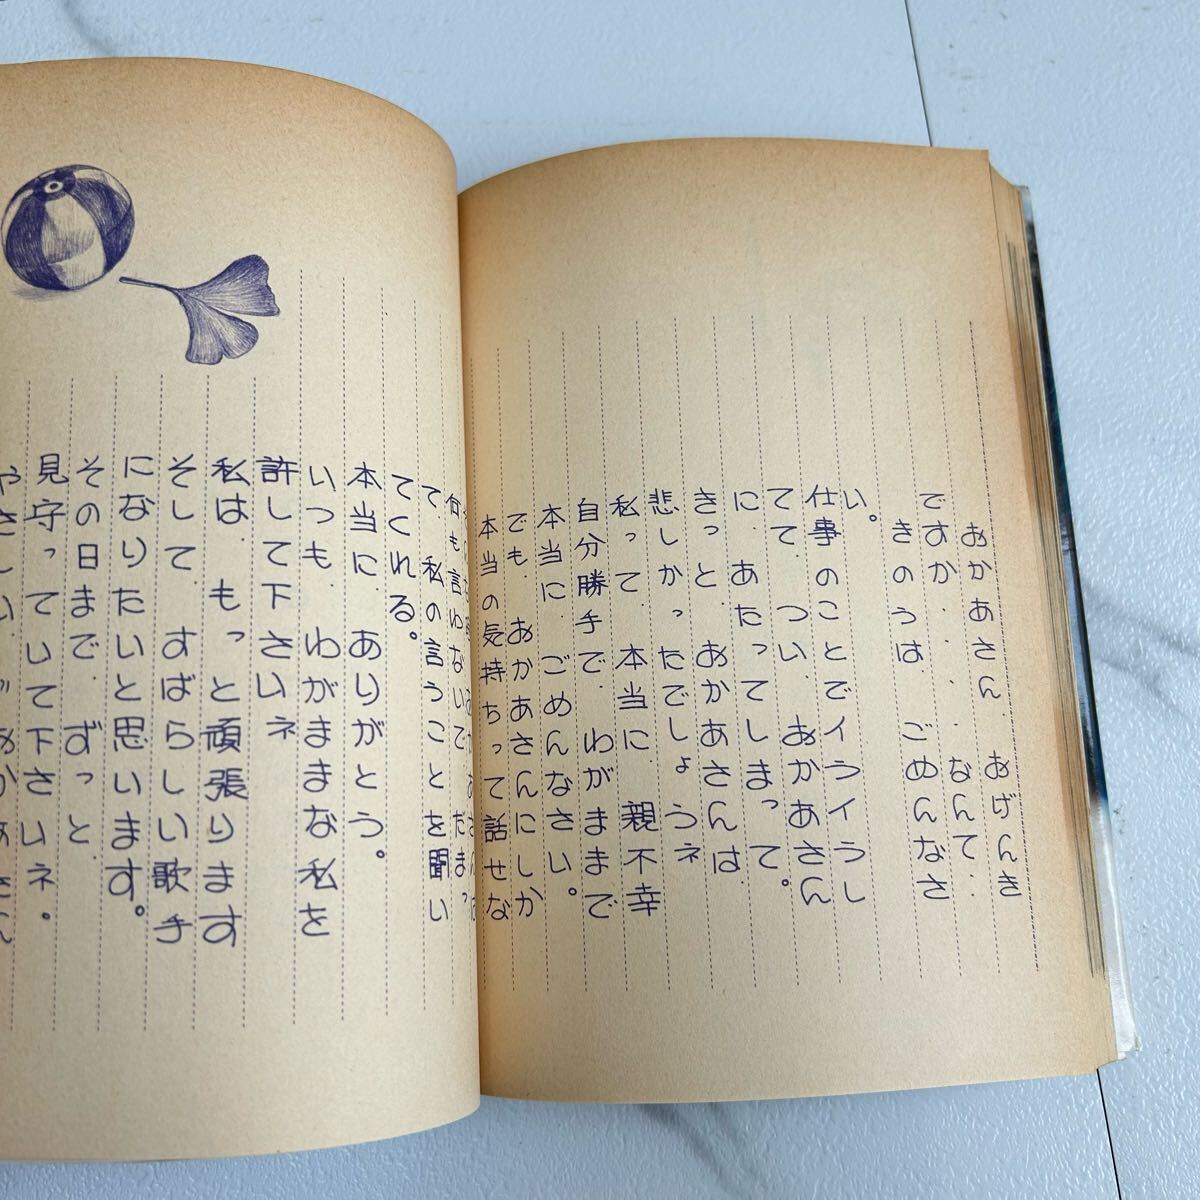 おかあさん、おげんき
ですか、、、なんて、、
きのうは ごめんなさ
い。
仕事のことでイライラし
てて、つい、おかあさん
に、あたってしまって。
きっと、おかあさんは、
悲しかったでしょうネ
私って、本当に、親不幸
自分勝手で、わがままで
本当に、ごめんなさい。
でも、おかあさんにしか
本当の気持ちって話せな
何も言わないで、だまっ
て、私の言うことを聞い
てくれる。
本当に、ありがとう。
いつも、わがままな私を
許して下さいネ
私は、もっと頑張ります
そして、すばらしい歌手
になりたいと思います。
その日まで、ずっと、
見守っていて下さいネ。
やさしい、